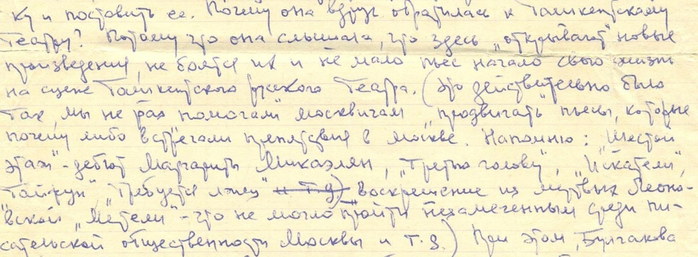 ку и поставить ее. Почему она вдруг обратилась к Ташкентскому
театру? Потому что она слышала, что здесь „открывают" новые
произведения, не боятся их и не мало пьес начало свою жизнь
на сцене Ташкентского русского театра. (Это действительно было
так, мы не раз помогали москвичам „продвигать" пьесы, которые
почему либо встречали препятствия в Москве. Напомню: „Шестой
этаж" - дебют Маргариты Микаэлян, „Третью голову", „Искатели",
„Тайфун", „Требуется лжец" и т.д) воскрешение из мертвых Леоно-
вской „Метели" - что не могло пройти незамеченным среди пи-
сательской общественности Москвы и т.д.) При этом, Булгакова